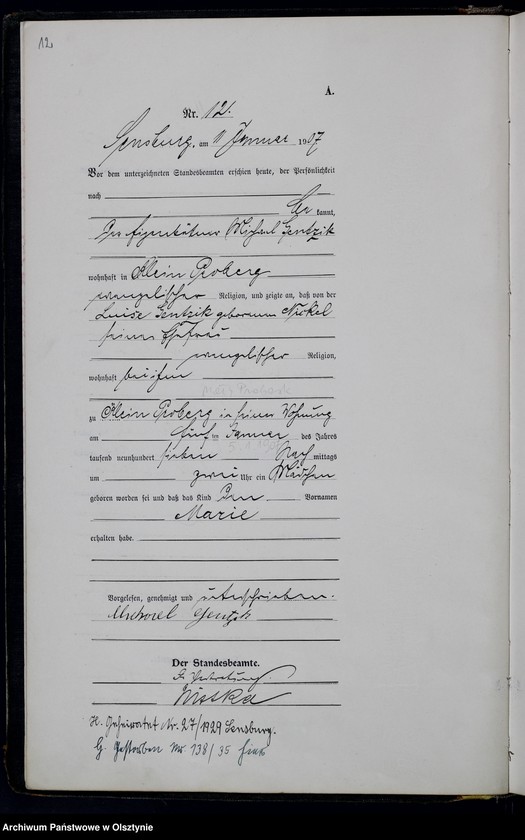 12
A.
Nr. 12.
Sensburg, am 11 Januar 1907
Vor dem unterzeichneten Standesbeamten erschien heute, der Persönlichkeit
nach
be kannt,
der Eigenkätner Michael Gentzik
wohnhaft in Klein Proberg
evangelischer Religion, und zeigte an, daß von der
Luise Gentzik geborenen Nickel
seiner Ehefrau
evangelischer Religion,
wohnhaft bei ihm
zu Klein Proberg in seiner Wohnung
am fünf ten Januar des Jahres
tausend neunhundert sieben Nach mittags
um zwei Uhr ein Mädchen
geboren worden sei und daß das Kind den Vornamen
Marie
erhalten habe.
Vorgelesen, genehmigt und unterschrieben.
Michael Gentzik
Der Standesbeamte.
In Vertretung.
H. Geheiratet Nr. 27/1929 Sensburg.
G. Gestorben Nr. 138/35 hier
Archiwum Państwowe w Olsztynie